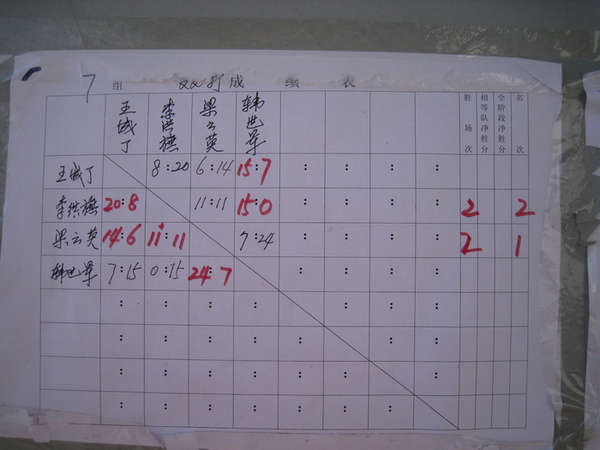 7 组 双打 成 绩 表
王诚丁 李洪旗 梁云英 韩世军 胜场次 相等队净胜分 全阶段净胜分 名次
王诚丁 8:20 6:14 15:7 : : : :
李洪旗 20:8 11:11 15:0 : : : : 2 2
梁云英 14:6 11:11 7:24 : : : : 2 1
韩世军 7:15 0:15 24:7 : : : :
: : : : : : :
: : : : : : :
: : : : : : :
: : : : : : :